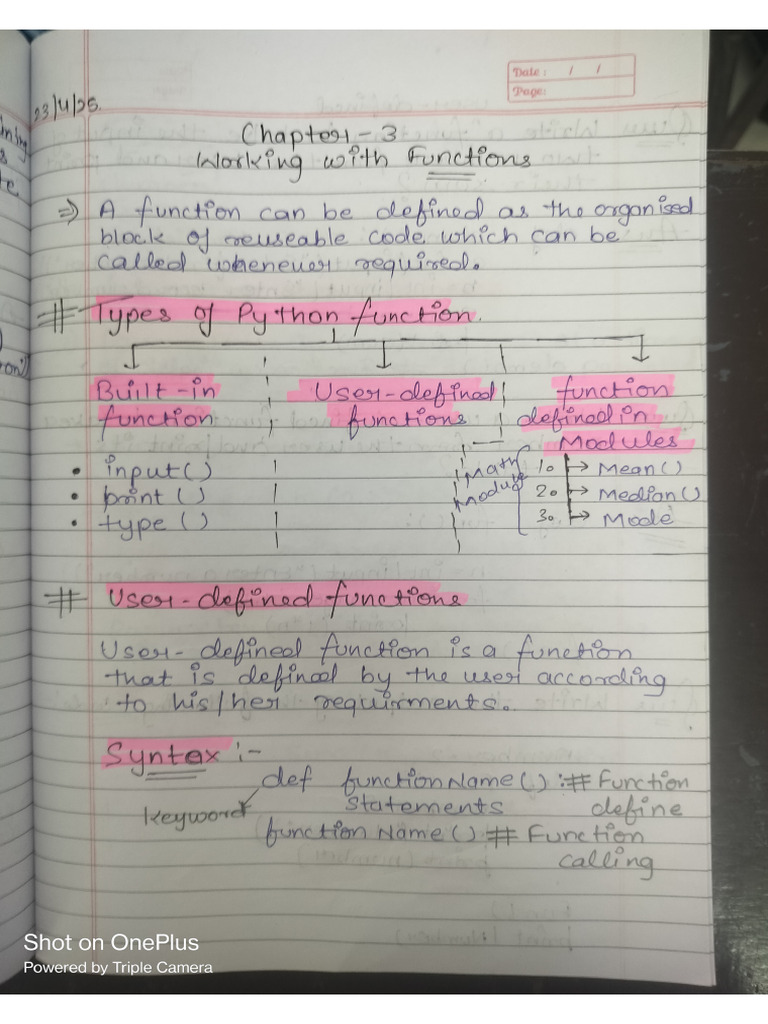 23/4/25.
Date: / /
Page:
Chapter - 3
Working with Functions
⇒ A function can be defined as the organised
block of reuseable code which can be
called whenever required.
# Types of Python function.
Built-in function
User-defined functions
function defined in Modules
• input()
• print()
• type()
Math Module
1. → Mean()
2. → Median()
3. → Mode
# User-defined functions
User-defined function is a function
that is defined by the user according
to his/her requirments.
Syntax :-
def functionName() : # Function
Keyword statements define
function Name() # Function
calling
Shot on OnePlus
Powered by Triple Camera